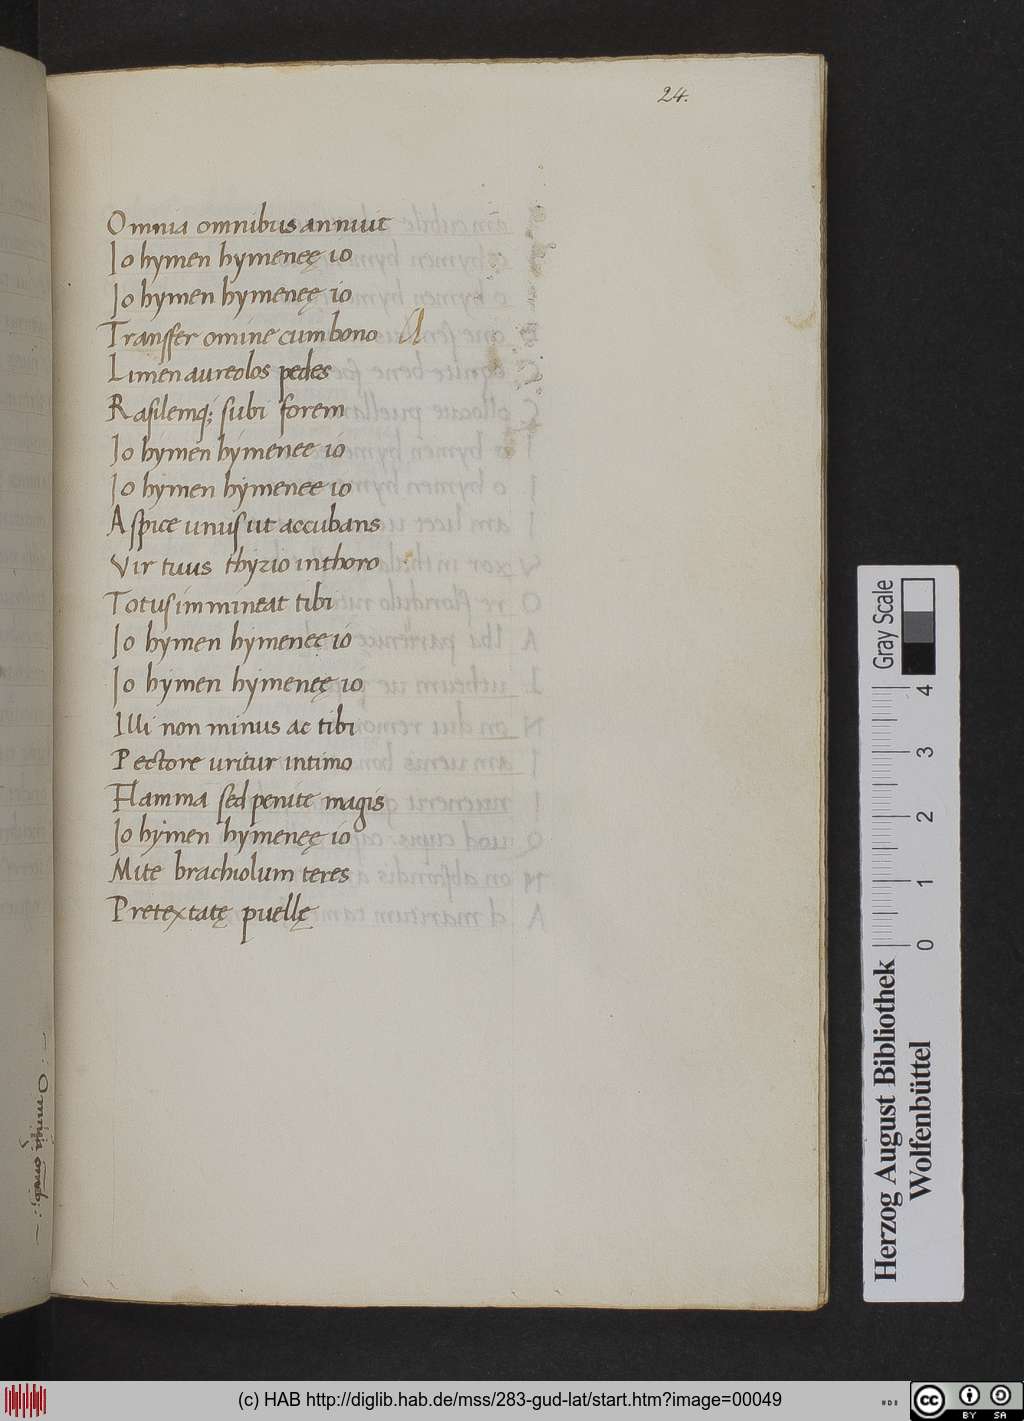 24.
Omnia omnibus annuit
Io hymen hymeneę io
Io hymen hymeneę io
Transfer omine cum bono
Limen aureolos pedes
Rasilemq; subi forem
Io hymen hymenee io
Io hymen hymenee io
Aspice unus ut accubans
Vir tuus thyrio in thoro
Totus immineat tibi
Io hymen hymeneę io
Io hymen hymeneę io
Illi non minus ac tibi
Pectore uritur intimo
Flamma sed penite magis
Io hymen hymeneę io
Mite brachiolum teres
Pretextatę puellę
Gray Scale
4
3
2
1
0
Herzog August Bibliothek
Wolfenbüttel
(c) HAB http://diglib.hab.de/mss/283-gud-lat/start.htm?image=00049
HAB
cc BY SA